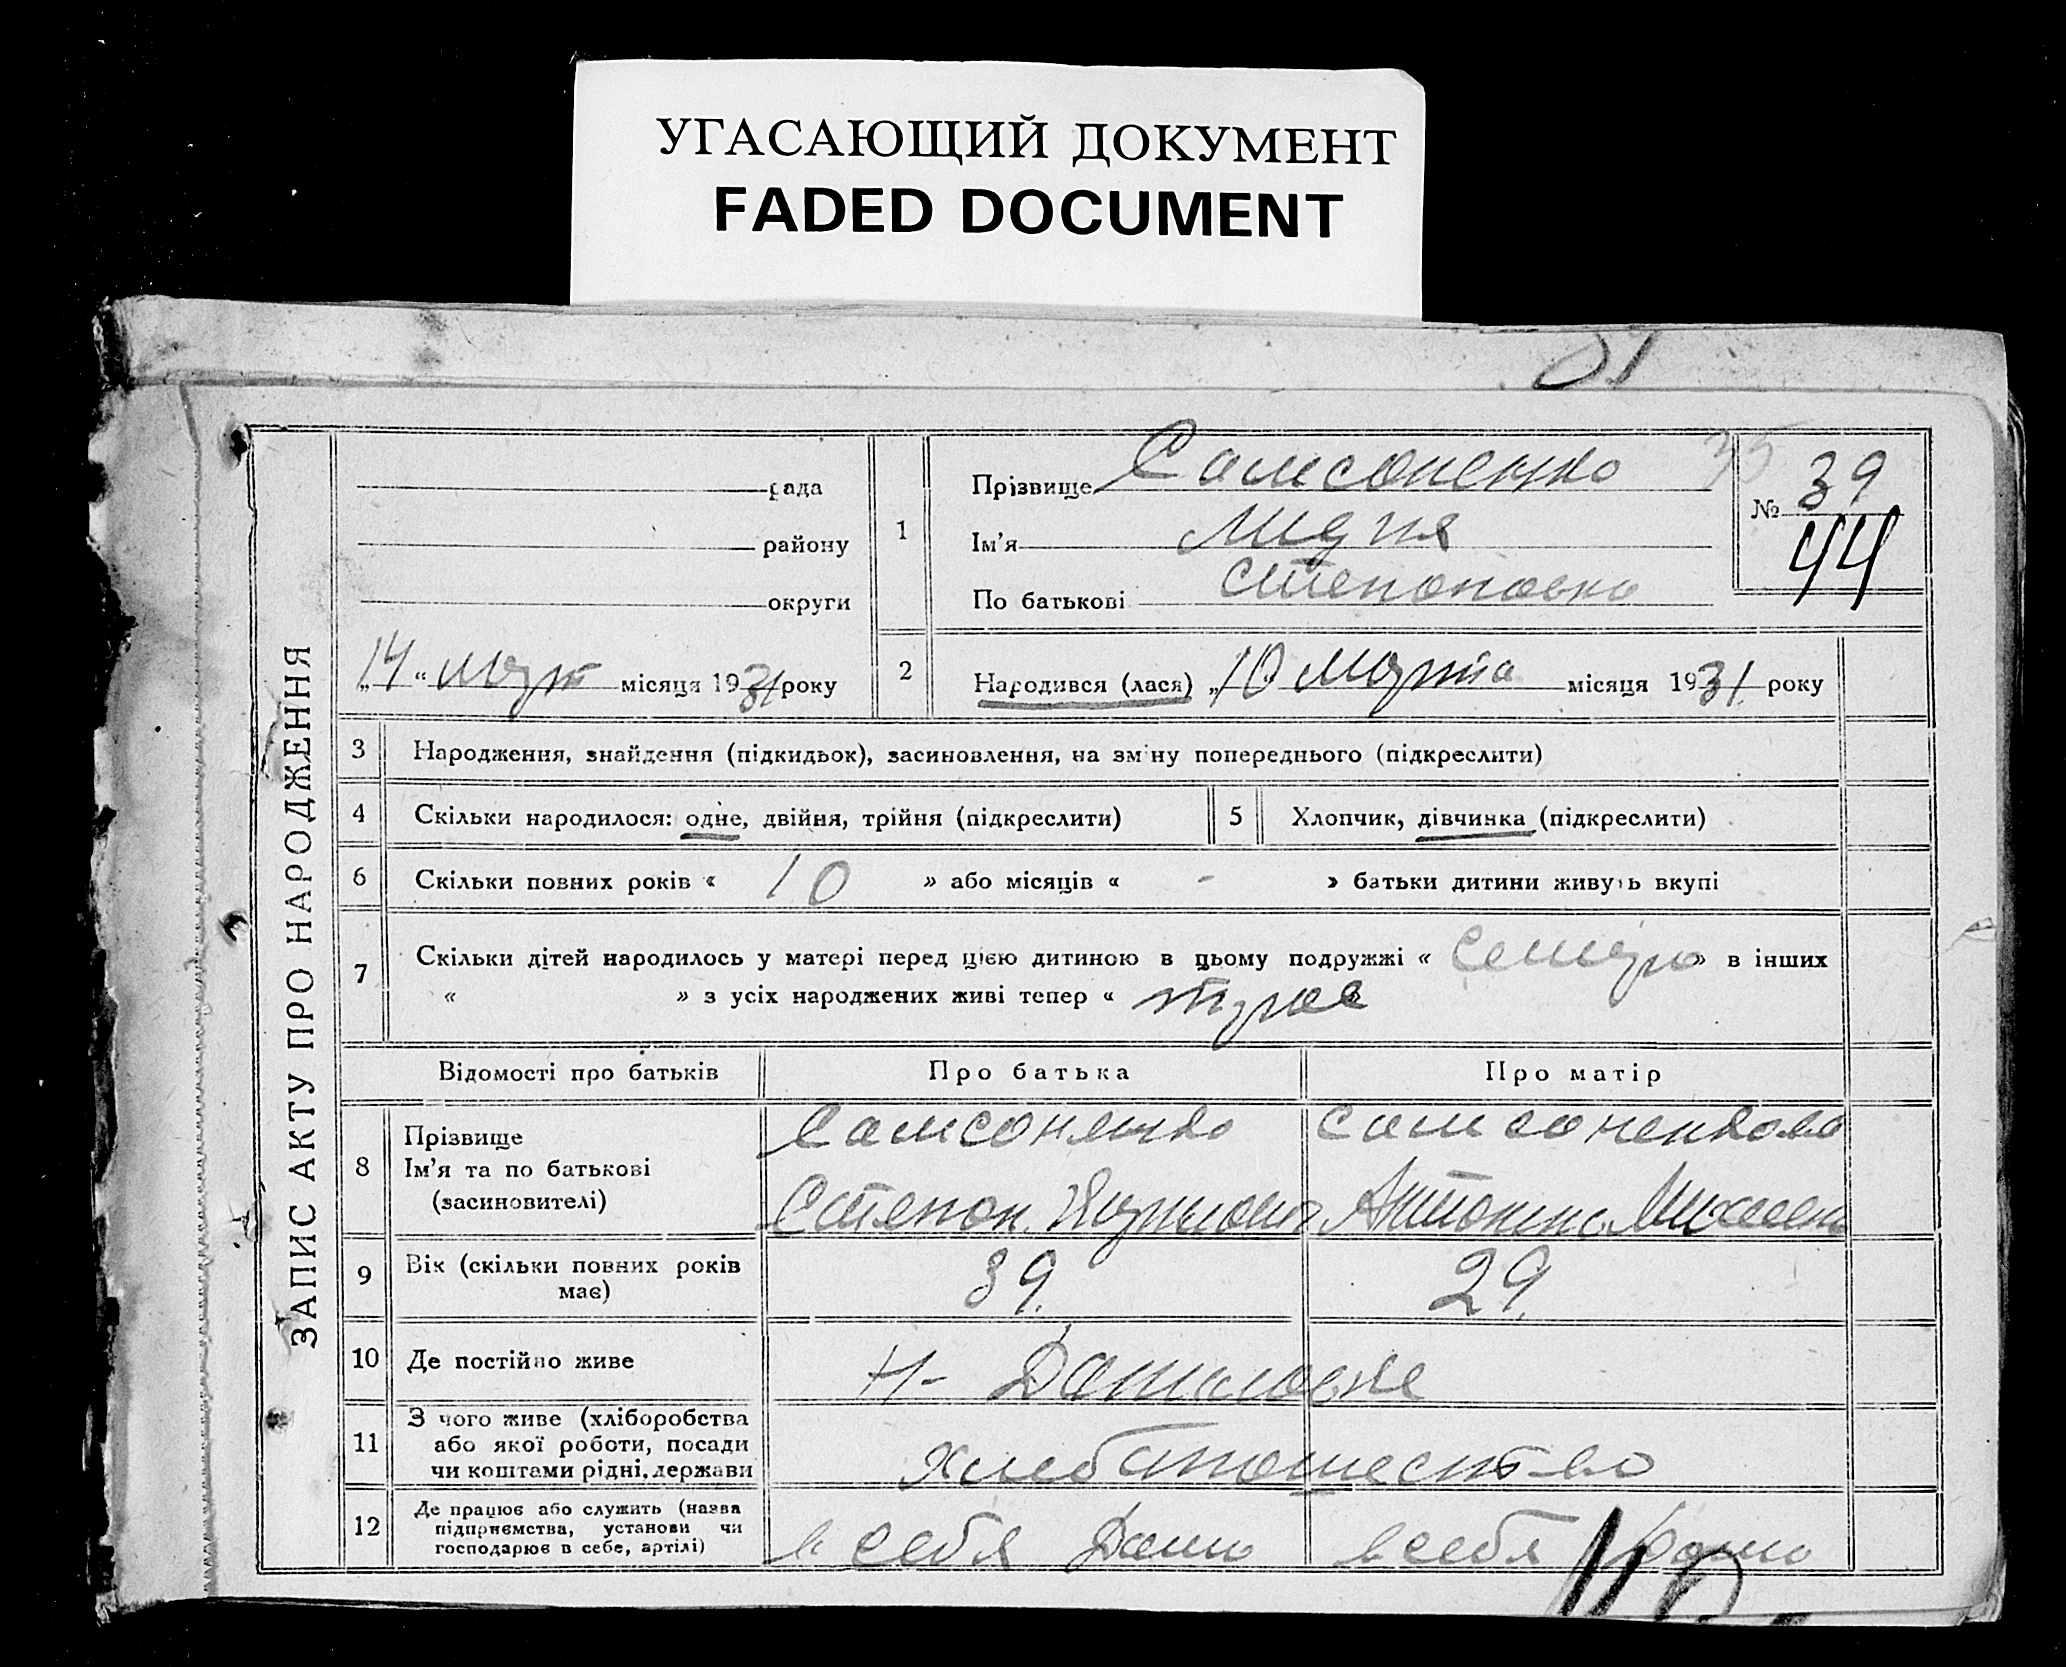 УГАСАЮЩИЙ ДОКУМЕНТ
FADED DOCUMENT
ЗАПИС АКТУ ПРО НАРОДЖЕННЯ
рада
району
округи
„14“ март місяця 1931 року
1
Прізвище Самсоненко
Ім'я Лидия
По батькові Степановна
35
№ 39
44
2
Народився (лася) „10 Марта місяця 1931 року
3 Народження, знайдення (підкидьок), засиновлення, на зміну попереднього (підкреслити)
4 Скільки народилося: одне, двійня, трійня (підкреслити)
5 Хлопчик, дівчинка (підкреслити)
6 Скільки повних років « 10 » або місяців « - » батьки дитини живуть вкупі
7 Скільки дітей народилось у матері перед цією дитиною в цьому подружжі « » в інших
« » з усіх народжених живі тепер «
Відомості про батьків Про батька Про матір
8 Прізвище
Ім'я та по батькові
(засиновителі)
Самсоненко
Степан
Самсоненкова
Антонина
9 Вік (скільки повних років має)
39.
29.
10 Де постійно живе
Н-
11 З чого живе (хліборобства
або якої роботи, посади
чи коштами рідні, держави
12 Де працює або служить (назва
підприємства, установи чи
господарює в себе, артілі)
в себя Дома
в себя Дома